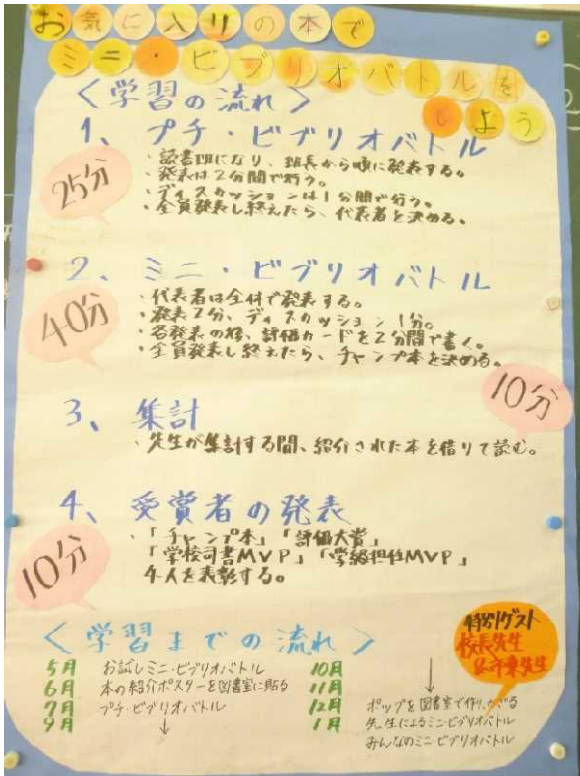 お気に入りの本で
ミニ・ビブリオバトルを
しよう
〈学習の流れ〉
1、プチ・ビブリオバトル
25分
・読書班になり、班長から順に発表する。
・発表は2分間で行う。
・ディスカッションは1分間で行う。
・全員発表し終えたら、代表者を決める。
2、ミニ・ビブリオバトル
40分
・代表者は全体で発表する。
・発表2分、ディスカッション1分。
・各発表の後、評価カードを2分間で書く。
・全員発表し終えたら、チャンプ本を決める。
10分
3、集計
・先生が集計する間、紹介された本を借りて読む。
4、受賞者の発表
10分
・「チャンプ本」「評価大賞」
「学校司書MVP」「学級担任MVP」
4人を表彰する。
特別ゲスト
校長先生
&
先生
〈学習までの流れ〉
5月 お試しミニ・ビブリオバトル
6月 本の紹介ポスターを図書室に貼る
7月 プチ・ビブリオバトル
9月 ↓
10月 ↓
11月
12月 ポップを図書室で作り、かざる
1月 先生によるミニ・ビブリオバトル
みんなのミニ・ビブリオバトル